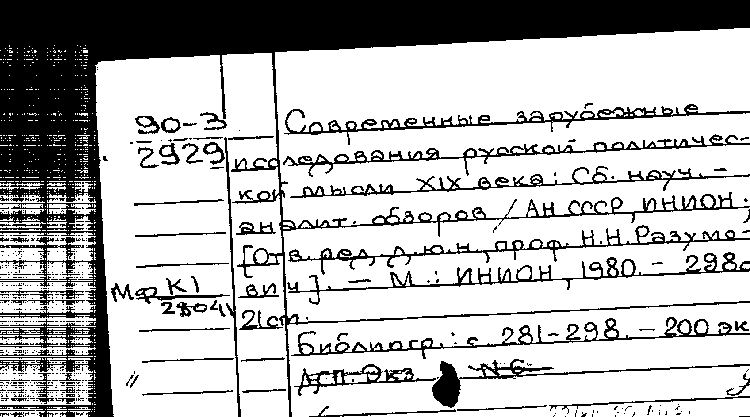 90-3
2929
Современные зарубежные
исследования русской политичес-
кой мысли XIX века: Сб. науч.-
аналит. обзоров / АН СССР, ИНИОН;
[Отв. ред. д.ю.н., проф. Н.Н. Разумо-
вич]. — М.: ИНИОН, 1980. - 298с
21см.
МФ К1
28041
Библиогр.: с. 281-298. - 200 эк
ДСП. Экз. N 6